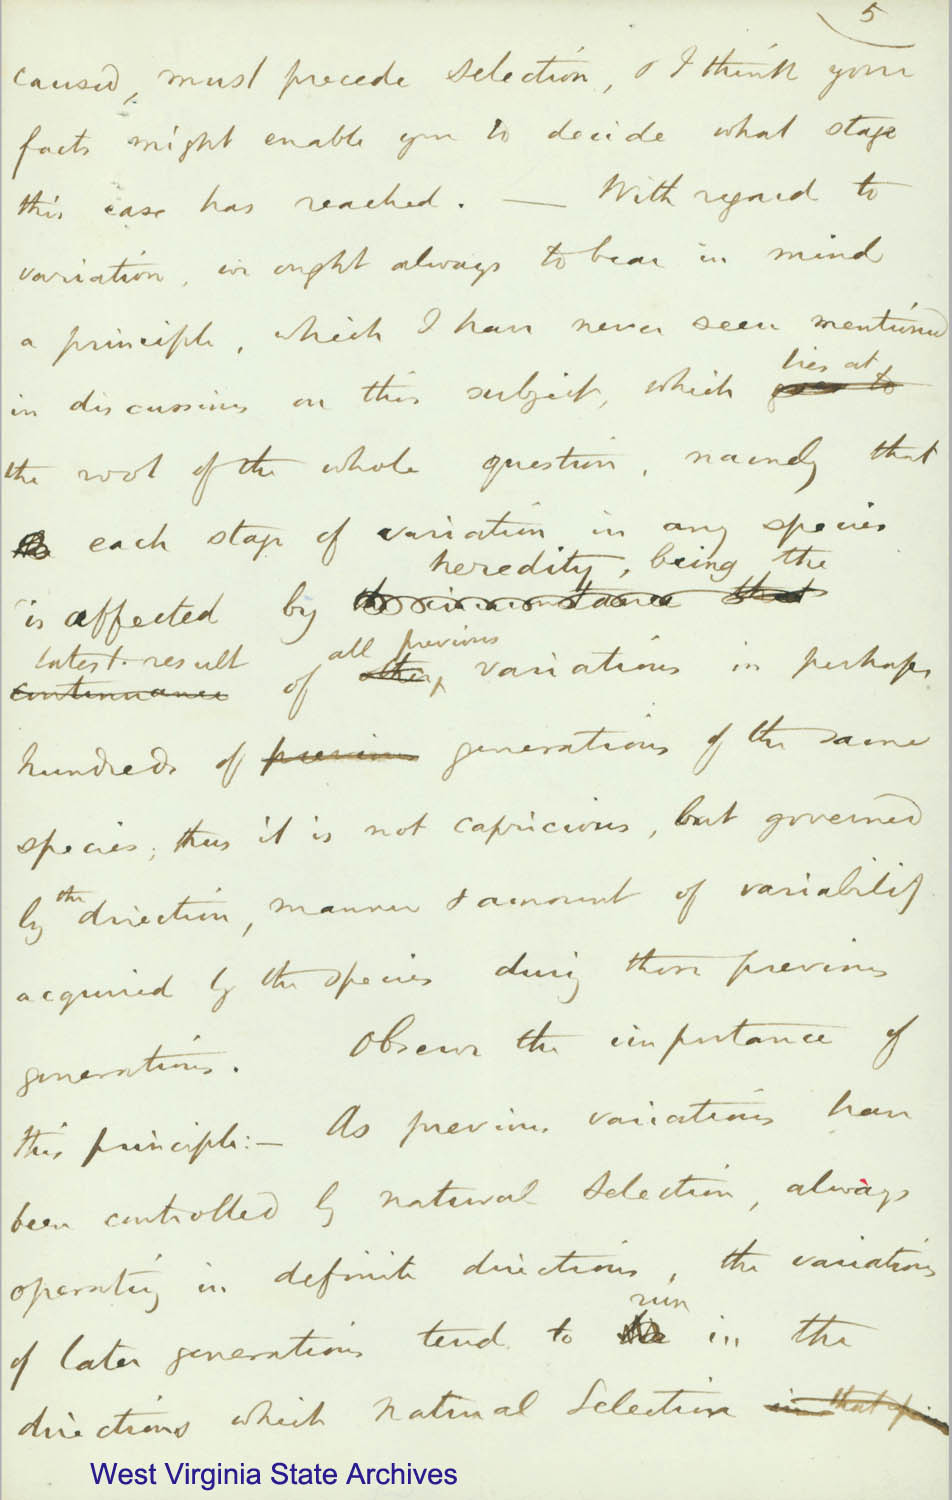 5
caused, must precede selection, & I think your
facts might enable you to decide what stage
this case has reached. — With regard to
variation, we ought always to bear in mind
a principle, which I have never seen mentioned
in discussions on this subject, which lies at
the root of the whole question, namely that
each stage of variation in any species
heredity, being the
is affected by the circumstance that
latest result all previous
continuance of other variations in perhaps
hundreds of previous generations of the same
species; thus it is not capricious, but governed
by the direction, manner & amount of variability
acquired by the species during those previous
generations. Observe the importance of
this principle:— As previous variations have
been controlled by natural selection, always
operating in definite directions, the variations
run
of later generations tend to be in the
directions which natural Selection in that
West Virginia State Archives